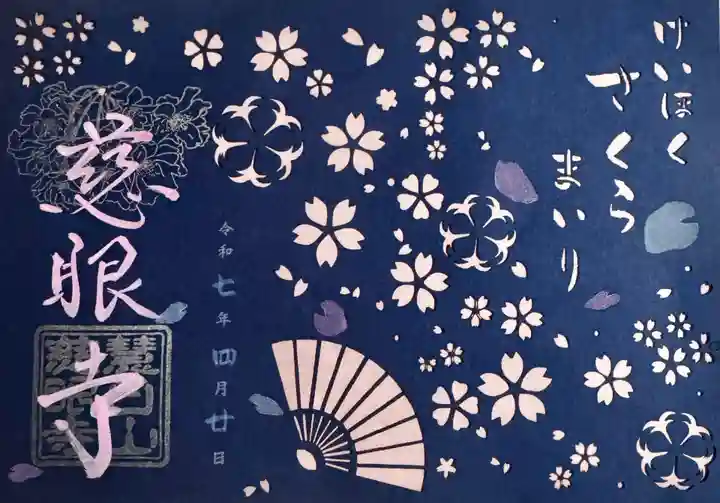 けいほく
さくら
まいり
令和七年四月廿日
慈眼寺
慧日山
慈眼寺